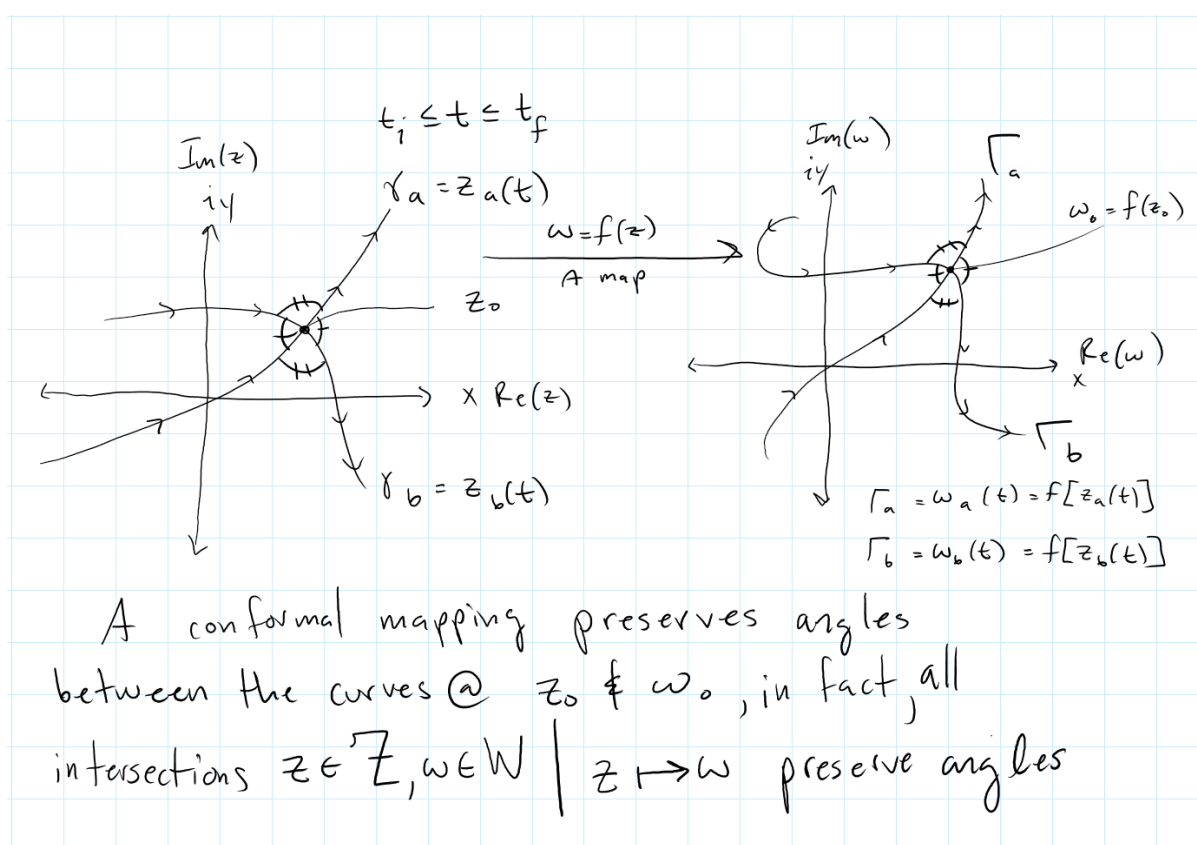 tᵢ ≤ t ≤ t_f
Im(z)
iy
γₐ = zₐ(t)
z₀
x Re(z)
γ_b = z_b(t)
w = f(z)
A map
Im(w)
iy
Γₐ
w₀ = f(z₀)
Re(w)
x
Γ_b
Γₐ = wₐ(t) = f[zₐ(t)]
Γ_b = w_b(t) = f[z_b(t)]
A conformal mapping preserves angles
between the curves @ z₀ & w₀, in fact, all
intersections z ∈ Z, w ∈ W | z ↦ w preserve angles